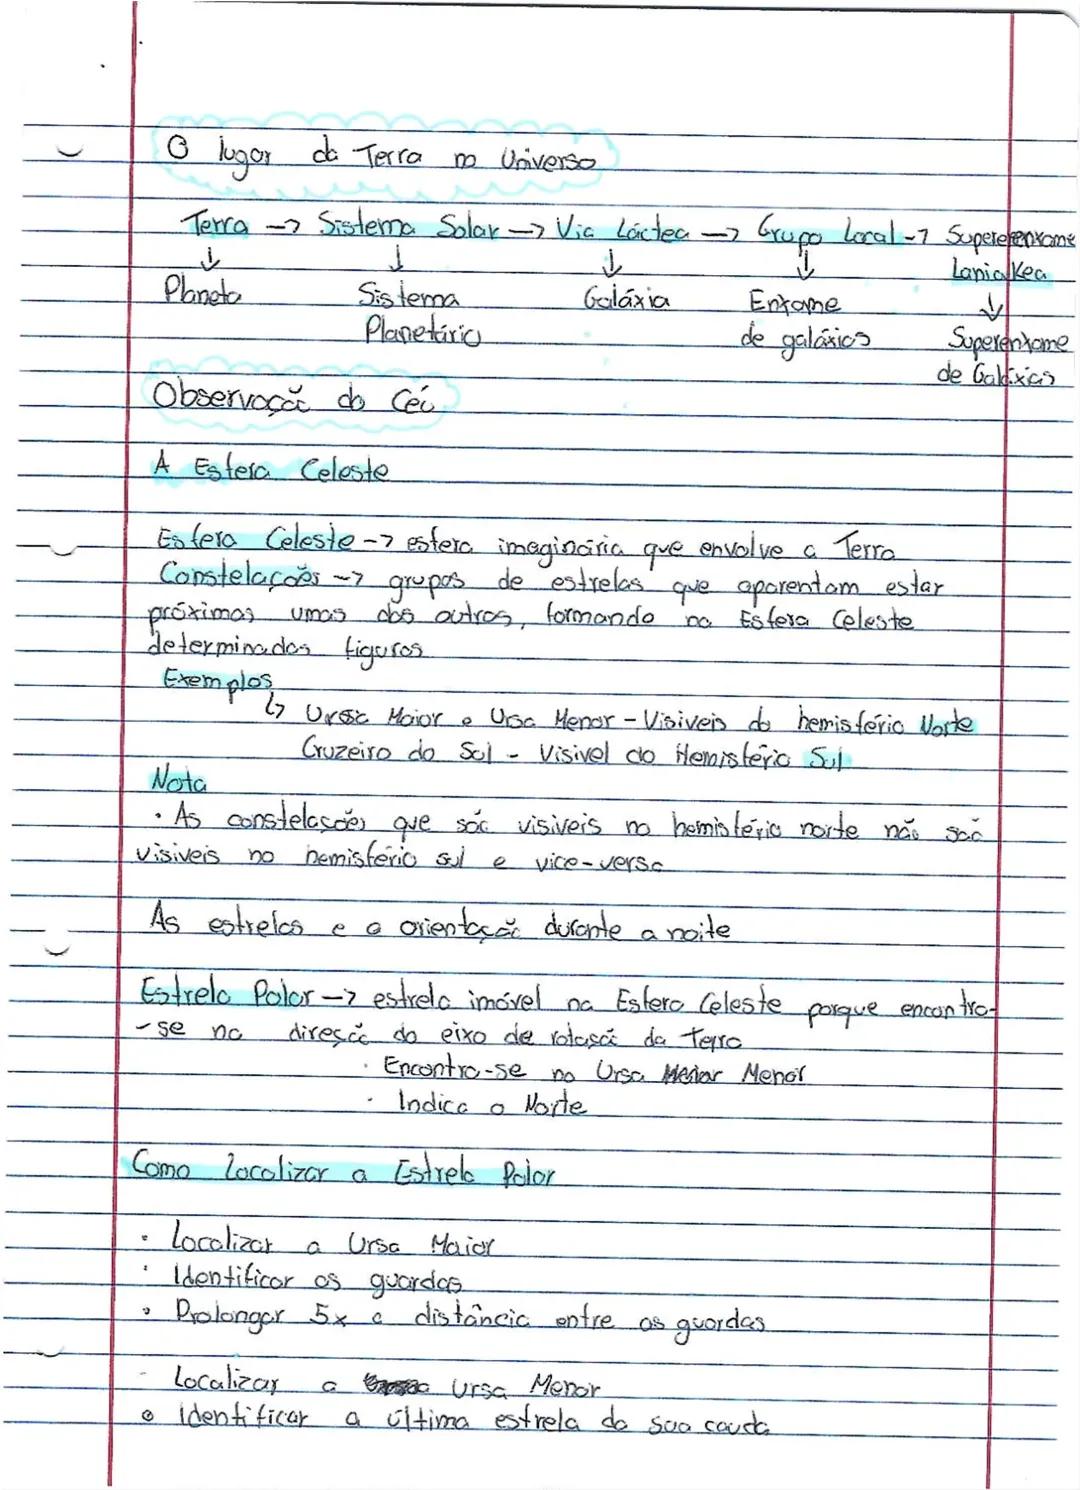 O lugar da Terra no Universo
Terra -> Sistema Solar -> Via Láctea -> Grupo Local -> Superenxame
↓ ↓ ↓ ↓ Laniakea
Planeta Sistema Galáxia Enxame ↓
Planetário de galáxias Superenxame
de Galáxias
Observação do Céu
A Esfera Celeste
Esfera Celeste -> esfera imaginária que envolve a Terra
Constelações -> grupos de estrelas que aparentam estar
próximas umas das outras, formando na Esfera Celeste
determinadas figuras
Exemplos
↳ Ursa Maior e Ursa Menor - Visiveis do hemisfério Norte
Cruzeiro do Sul - Visivel do Hemisfério Sul
Nota
· As constelações que são visiveis no hemisfério norte não são
visiveis no hemisfério sul e vice-versa
As estrelas e a orientação durante a noite
Estrela Polar -> estrela imóvel na Esfera Celeste porque encontra-
-se na direção do eixo de rotação da Terra
· Encontra-se na Ursa Menor
· Indica o Norte
Como Localizar a Estrela Polar
· Localizar a Ursa Maior
· Identificar as guardas
· Prolongar 5x a distância entre as guardas
- Localizar a Ursa Menor
· Identificar a última estrela da sua cauda